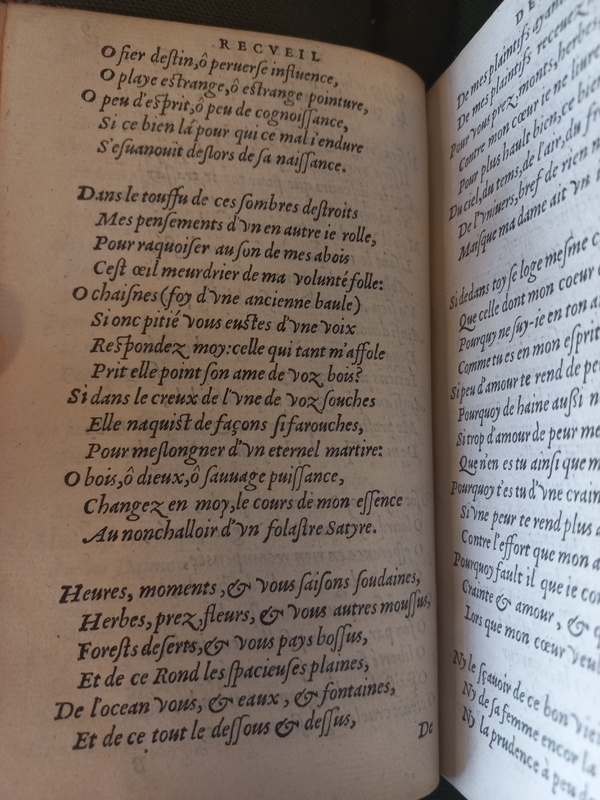 RECVEIL
O fier deſtin,ô peruerſe influence,
O playe eſtrange,ô eſtrange pointure,
O peu d'eſprit,ô peu de cognoiſſance,
Si ce bien lá pour qui ce mal i'endure
S'eſuanouit deſlors de ſa naiſſance.
Dans le touffu de ces ſombres deſtroits
Mes penſements d'vn en autre ie rolle,
Pour raquoiſer au ſon de mes abois
Ceſt œil meurdrier de ma volunté folle:
O chaiſnes (foy d'vne ancienne baule)
Si onc pitié vous euſtes d'vne voix
Reſpondez moy:celle qui tant m'affole
Prit elle point ſon ame de voz bois?
Si dans le creux de l'vne de voz ſouches
Elle naquiſt de façons ſi farouches,
Pour meſlongner d'vn eternel martire:
O bois,ô dieux,ô ſauuage puiſſance,
Changez en moy,le cours de mon eſſence
Au nonchalloir d'vn folaſtre Satyre.
Heures, moments ,& vous ſaiſons ſoudaines,
Herbes, prez,fleurs, & vous autres mouſſus,
Foreſts deſerts,& vous pays boſſus,
Et de ce Rond les ſpacieuſes plaines,
De l'ocean vous, & eaux , & fontaines,
Et de ce tout le deſſous & deſſus,
De
DE
De mes plaintifs ayan
De mes plaintifs receuez
Pour vous prez,monts,herbes,
Contre mon cœur ie ne liure
Pour plus hault bien,ce bien
Du ciel,du tems,de l'air,du fr
De l'vniuers,bref de rien n
Maiſque ma dame ait vn
Si dedans toy ſe loge meſme c
Que celle dont mon cœur
Pourquy ne ſuy-ie en ton a
Comme tu es en mon eſprit
Si peu d'amour te rend de pe
Pourquoy de haine auſſi n
Si trop d'amour de peur me
Que n'en es tu ainſi que m
Pourquoy t'es tu d'vne crain
Si vne peur te rend plus a
Contre l'effort que mon a
Pourquoy fault il que ie co
Crainte & amour, & q
Lors que mon cœur veul
Ny le ſçauoir de ce bon vie
Ny de ſa femme encor la
Ny la prudence à peu de